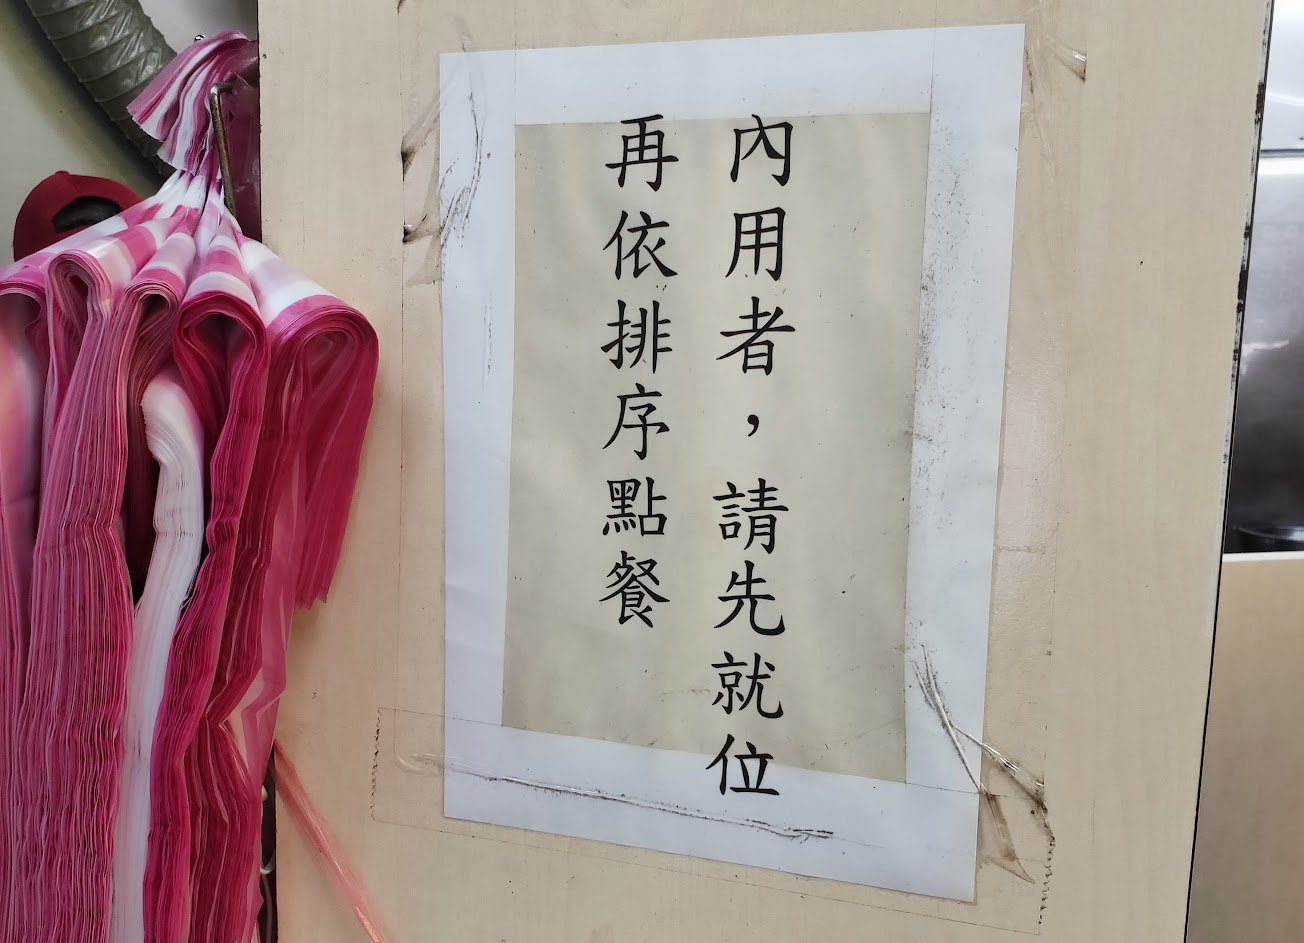 內用者，請先就位
再依排序點餐